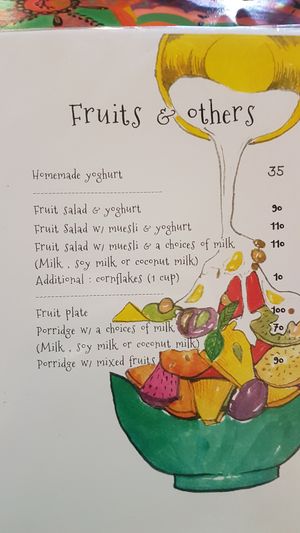 Fruits & others
Homemade yoghurt 35
Fruit salad & yoghurt 90
Fruit Salad w/ muesli & yoghurt 110
Fruit salad w/ muesli & a choices of milk 110
(Milk , soy milk or coconut milk)
Additional : cornflakes (1 cup) 10
Fruit plate 100
Porridge w/ a choices of milk 70
(Milk , soy milk or coconut milk)
Porridge w/ mixed fruits 90